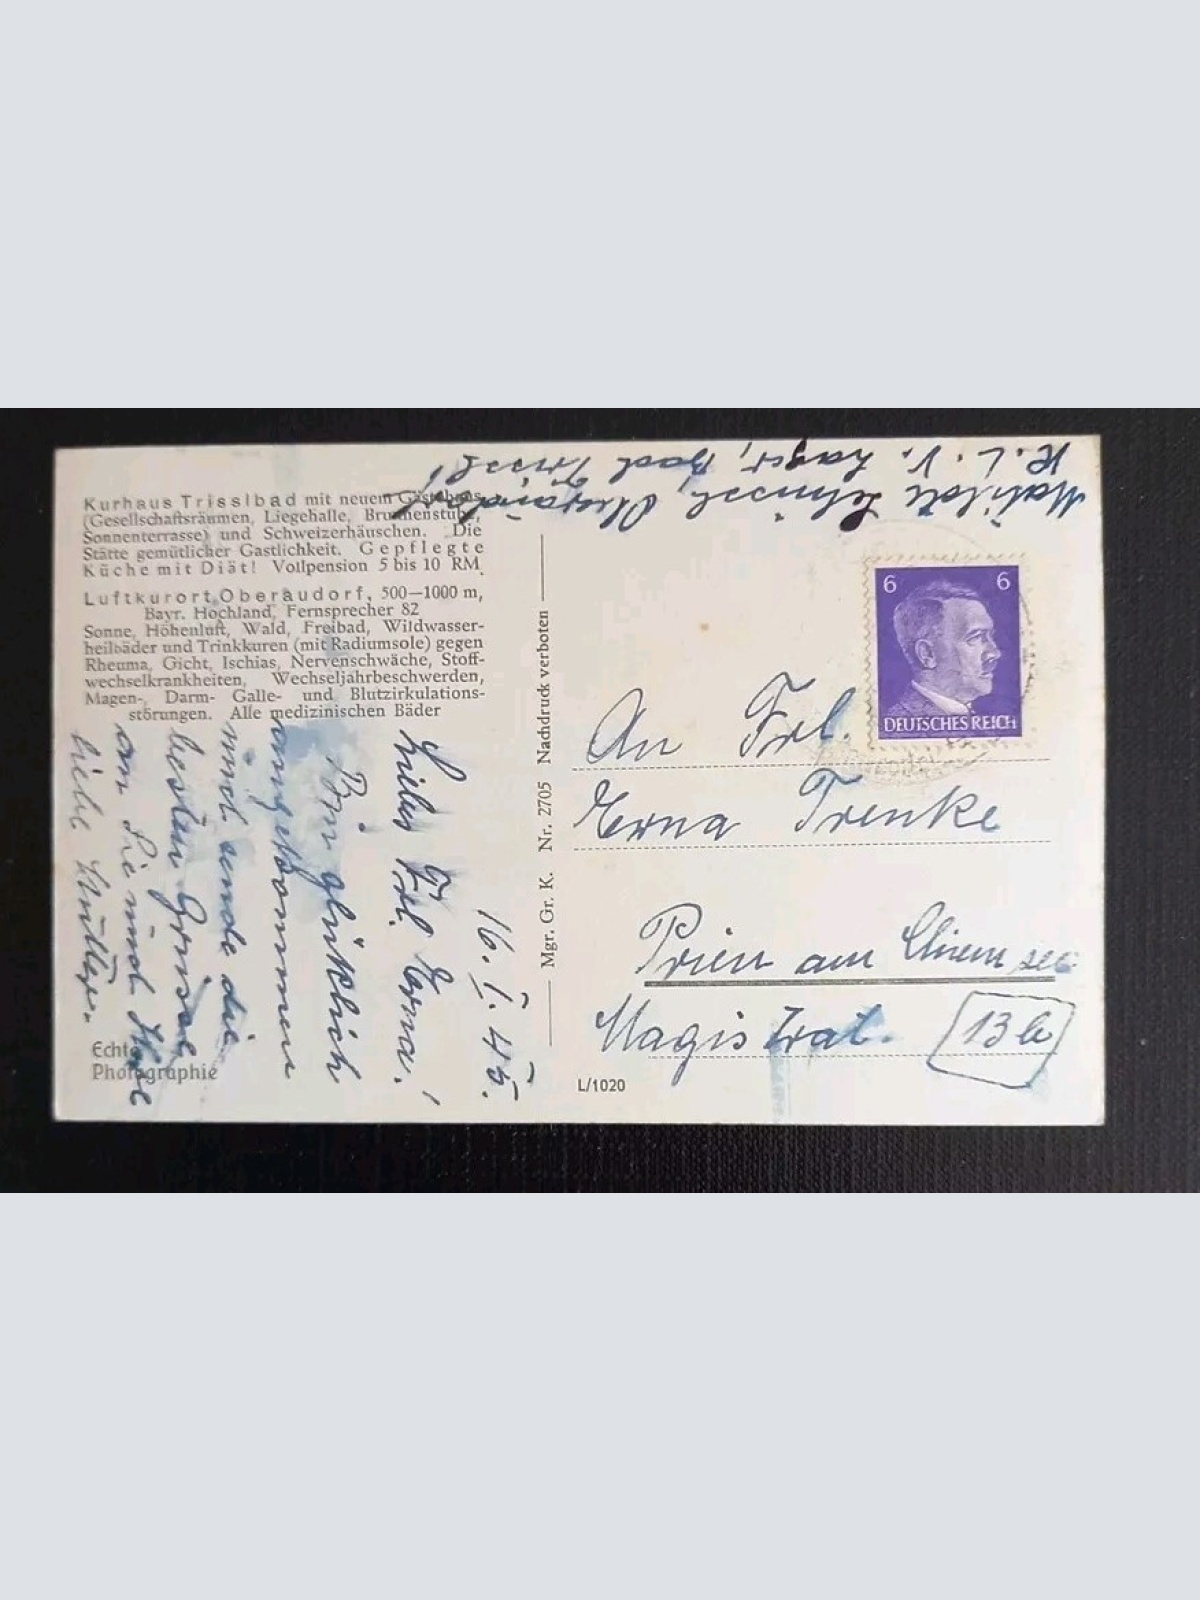 Kurhaus Trisslbad mit neuem Gästehaus
(Gesellschaftsräumen, Liegehalle, Brunnenstube,
Sonnenterrasse) und Schweizerhäuschen. Die
Stätte gemütlicher Gastlichkeit. Gepflegte
Küche mit Diät! Vollpension 5 bis 10 RM.
Luftkurort Oberaudorf, 500—1000 m,
Bayr. Hochland, Fernsprecher 82
Sonne, Höhenluft, Wald, Freibad, Wildwasser-
heilbäder und Trinkkuren (mit Radiumsole) gegen
Rheuma, Gicht, Ischias, Nervenschwäche, Stoff-
wechselkrankheiten, Wechseljahrbeschwerden,
Magen-, Darm- Galle- und Blutzirkulations-
störungen. Alle medizinischen Bäder
16. I. 45.
Liebes Frl. Erna!
Bin glücklich
angekommen
und sende die
besten Grüsse
an Sie und Ihre
liebe Mutter.
Echte
Photographie
Mgr. Gr. K. Nr. 2705 Nachdruck verboten
L/1020
Mathilde
K.L.V. Lager, Bad Trissl
6 6
DEUTSCHES REICH
An Frl.
Erna Trenke
Prien am Chiemsee
Magistrat.
13 b